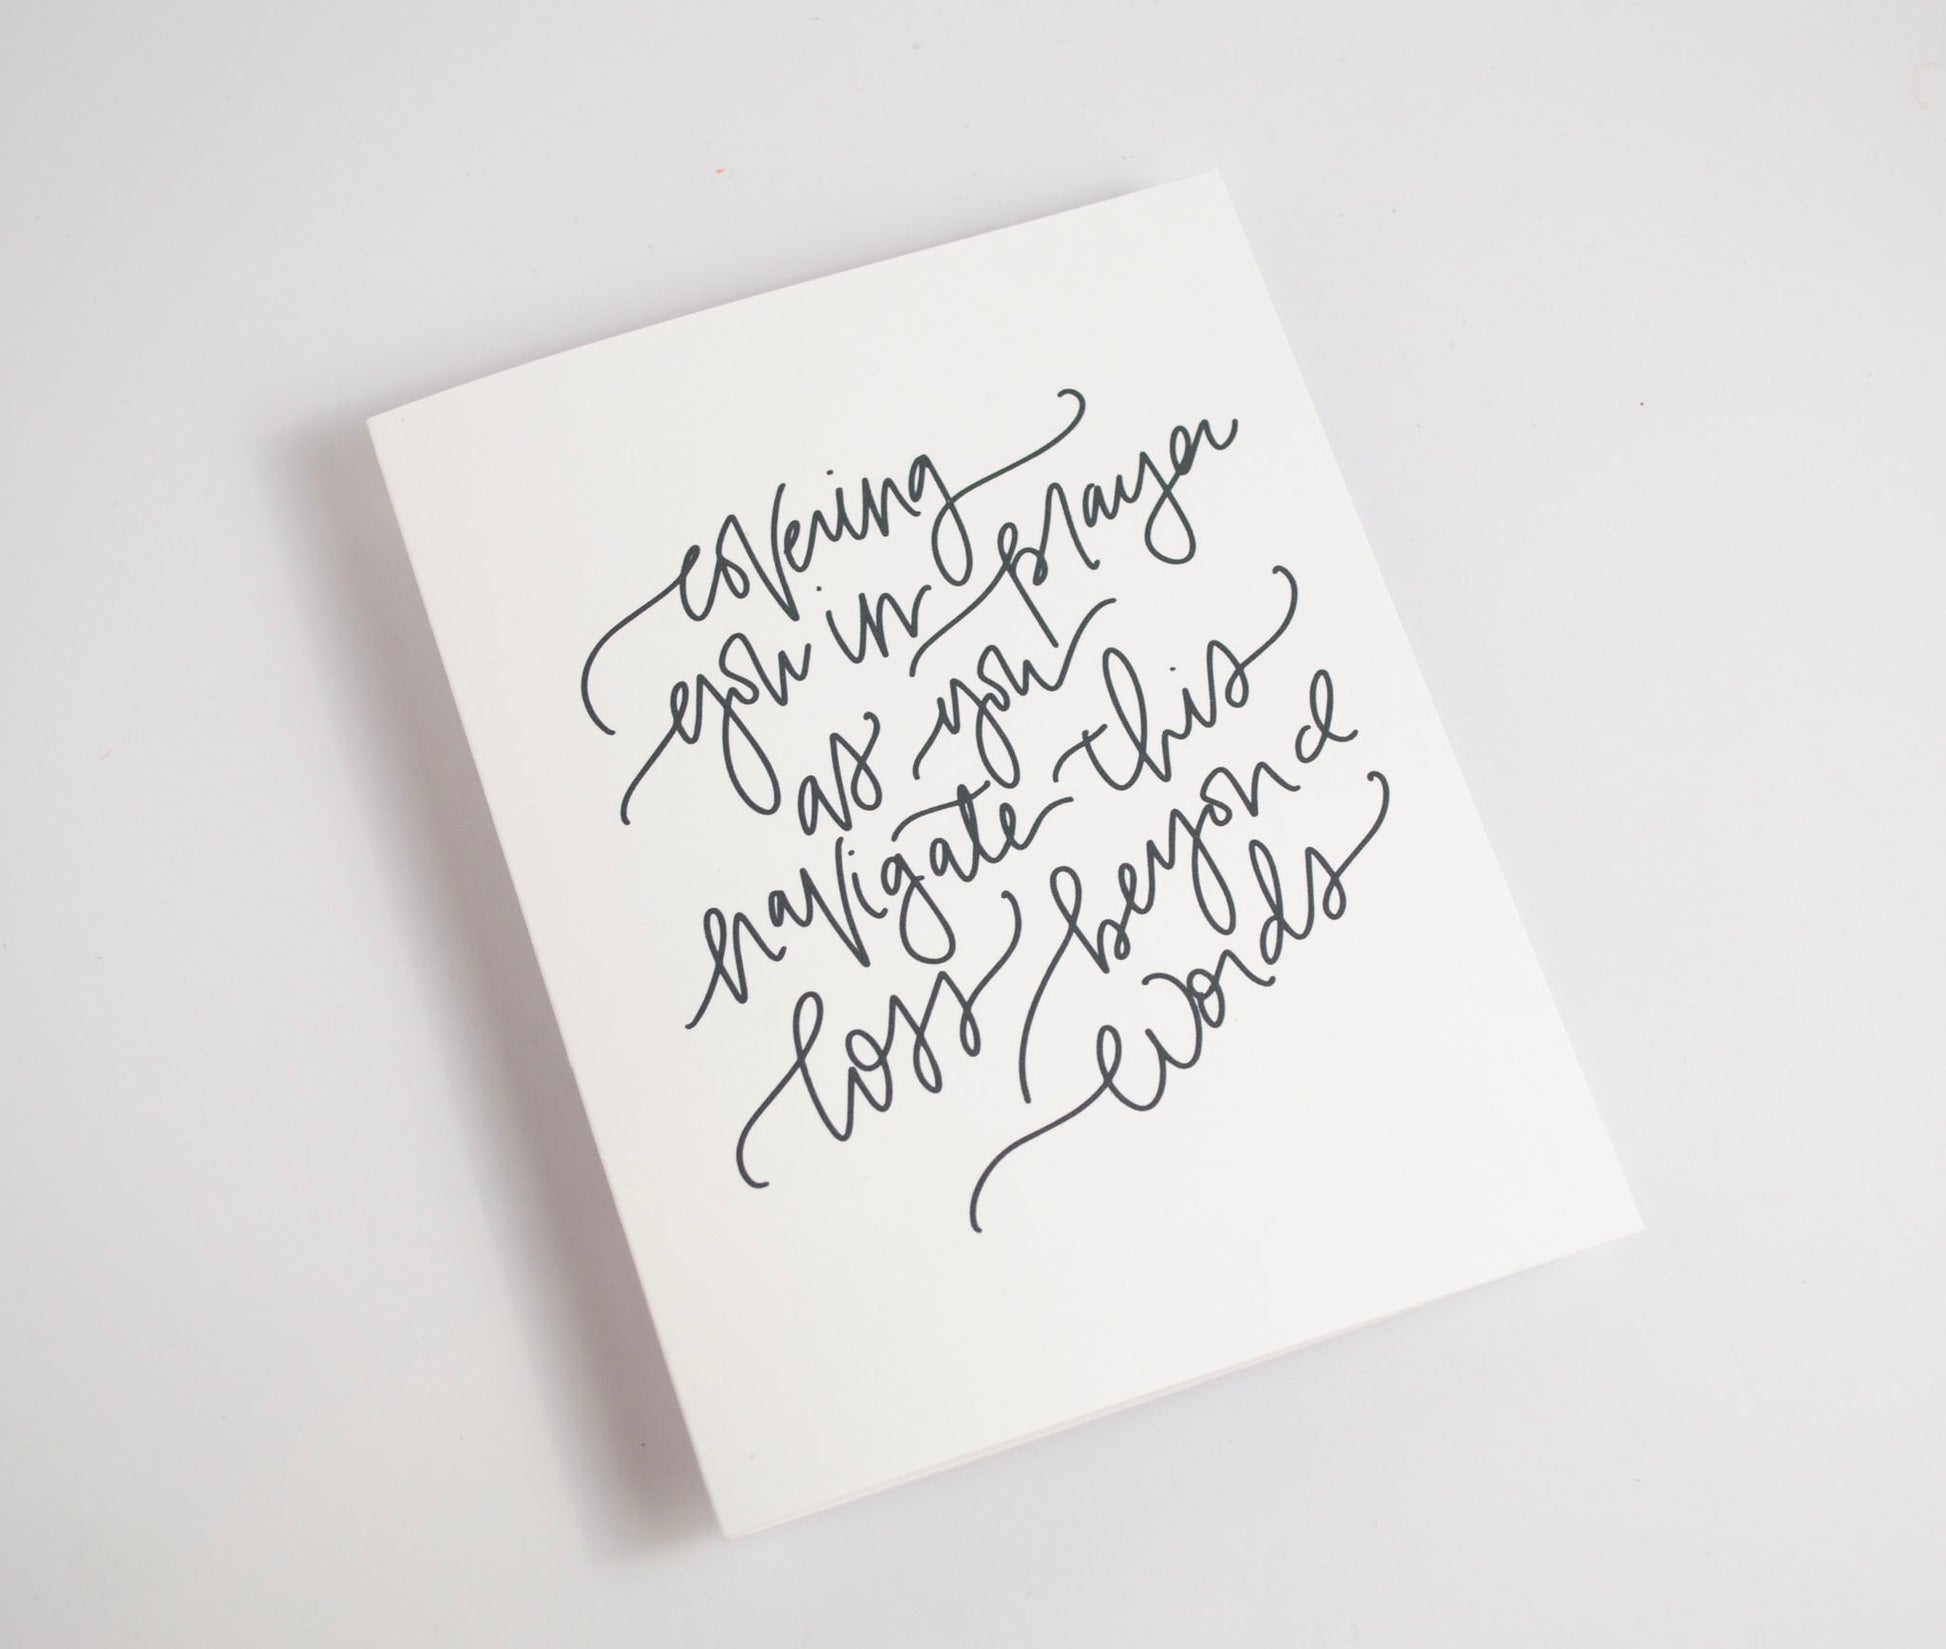 covering
you in prayer
as you
navigate this
loss beyond
words